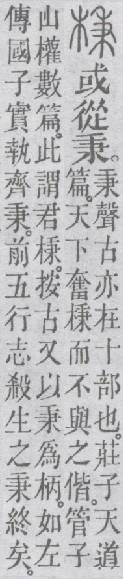 棅或從秉。
秉聲古亦在十部也。莊子天道
篇。天下奮棅而不與之偕。管子
山權數篇。此謂君棅。按古又以秉爲柄。如左
傳國子實執齊秉。前五行志殺生之秉終矣。